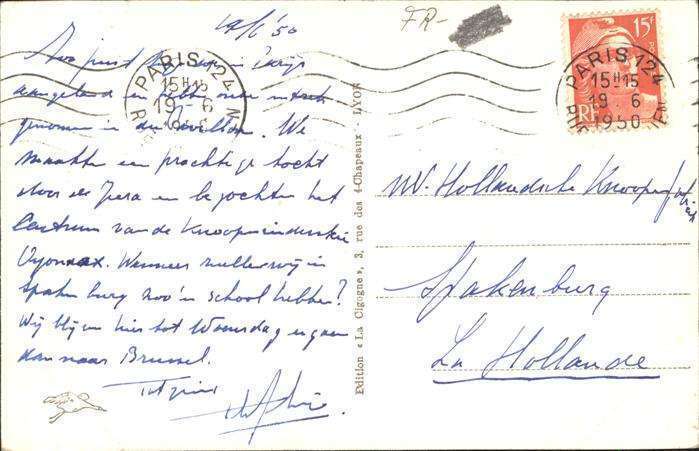 19/6 '50
FR-
PARIS 124
15H15
19 - 6
15F
PARIS 124
15H15
19 6
1950
RF
Zoo juist in Parijs
aangeland en hebben onze intrek
genomen in den. We
maakten een prachtige tocht
door de Jura en bezochten het
Centrum van de Knoopenindustrie
Oyonnax. Wanneer zullen wij in
Spakenburg zoo'n school hebben?
Wij blijven hier tot Woensdag en gaan
dan naar Brussel.
Tot ziens
Edition « La Cigogne », 3, rue des 4-Chapeaux - LYON
NV. Hollandsche Knoopenfabriek
Spakenburg
La Hollande